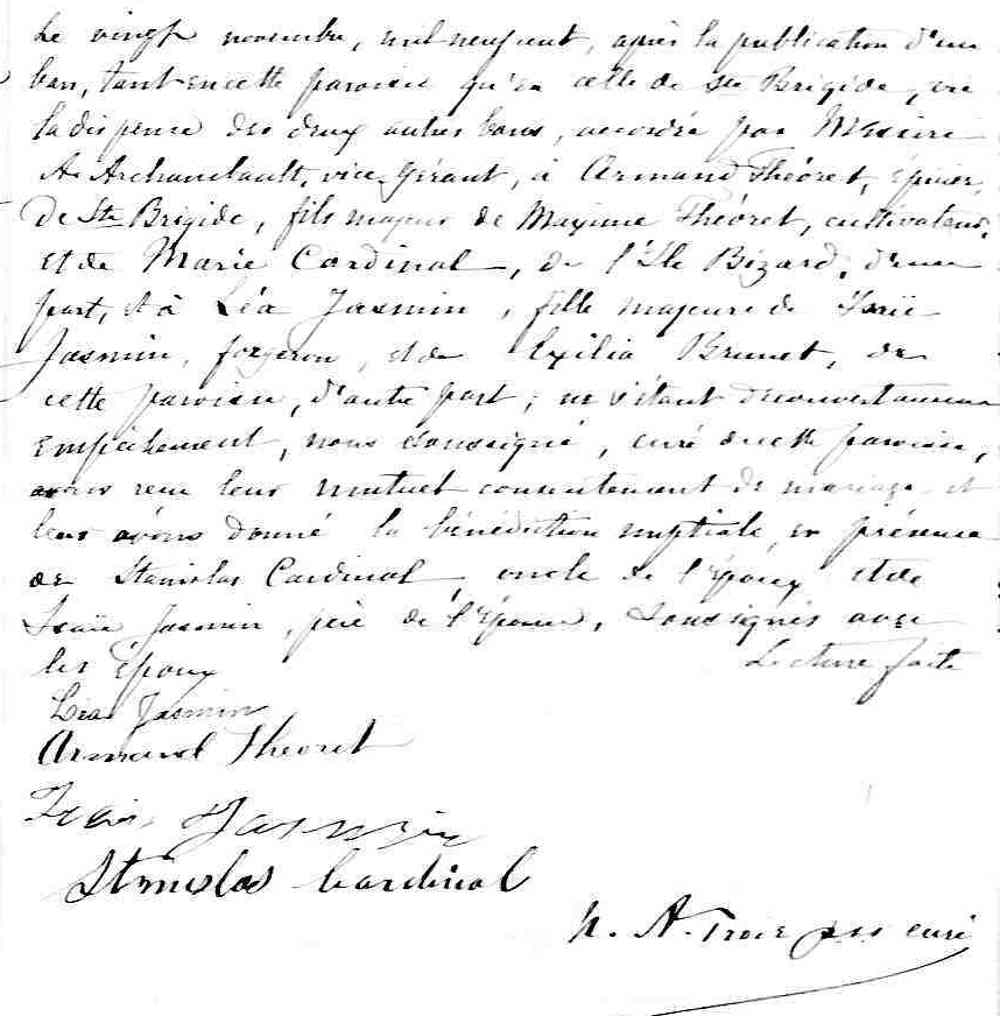 Le vingt novembre, mil neuf cent, après la publication d'un
ban, tant en cette paroisse qu'en celle de Ste Brigide, vu
la dispense des deux autres bans, accordée par Messire
A. Archambault, vice-gérant, à Armand Théoret, épicier,
de Ste Brigide, fils majeur de Maxime Théoret, cultivateur,
et de Marie Cardinal, de l'Ile Bizard, d'une
part, et à Léa Jasmin, fille majeure de Isaïe
Jasmin, forgeron, et de Exilia Brunet, de
cette paroisse, d'autre part; ne s'étant découvert aucun
empêchement, nous soussigné, curé de cette paroisse,
avons reçu leur mutuel consentement de mariage et
leur avons donné la bénédiction nuptiale en présence
de Stanislas Cardinal, oncle de l'époux et de
Isaïe Jasmin, père de l'épouse, soussignés avec
les époux Lecture faite
Léa Jasmin
Armand Theoret
Isaïe Jasmin
Stanislas Cardinal
A. ptre curé